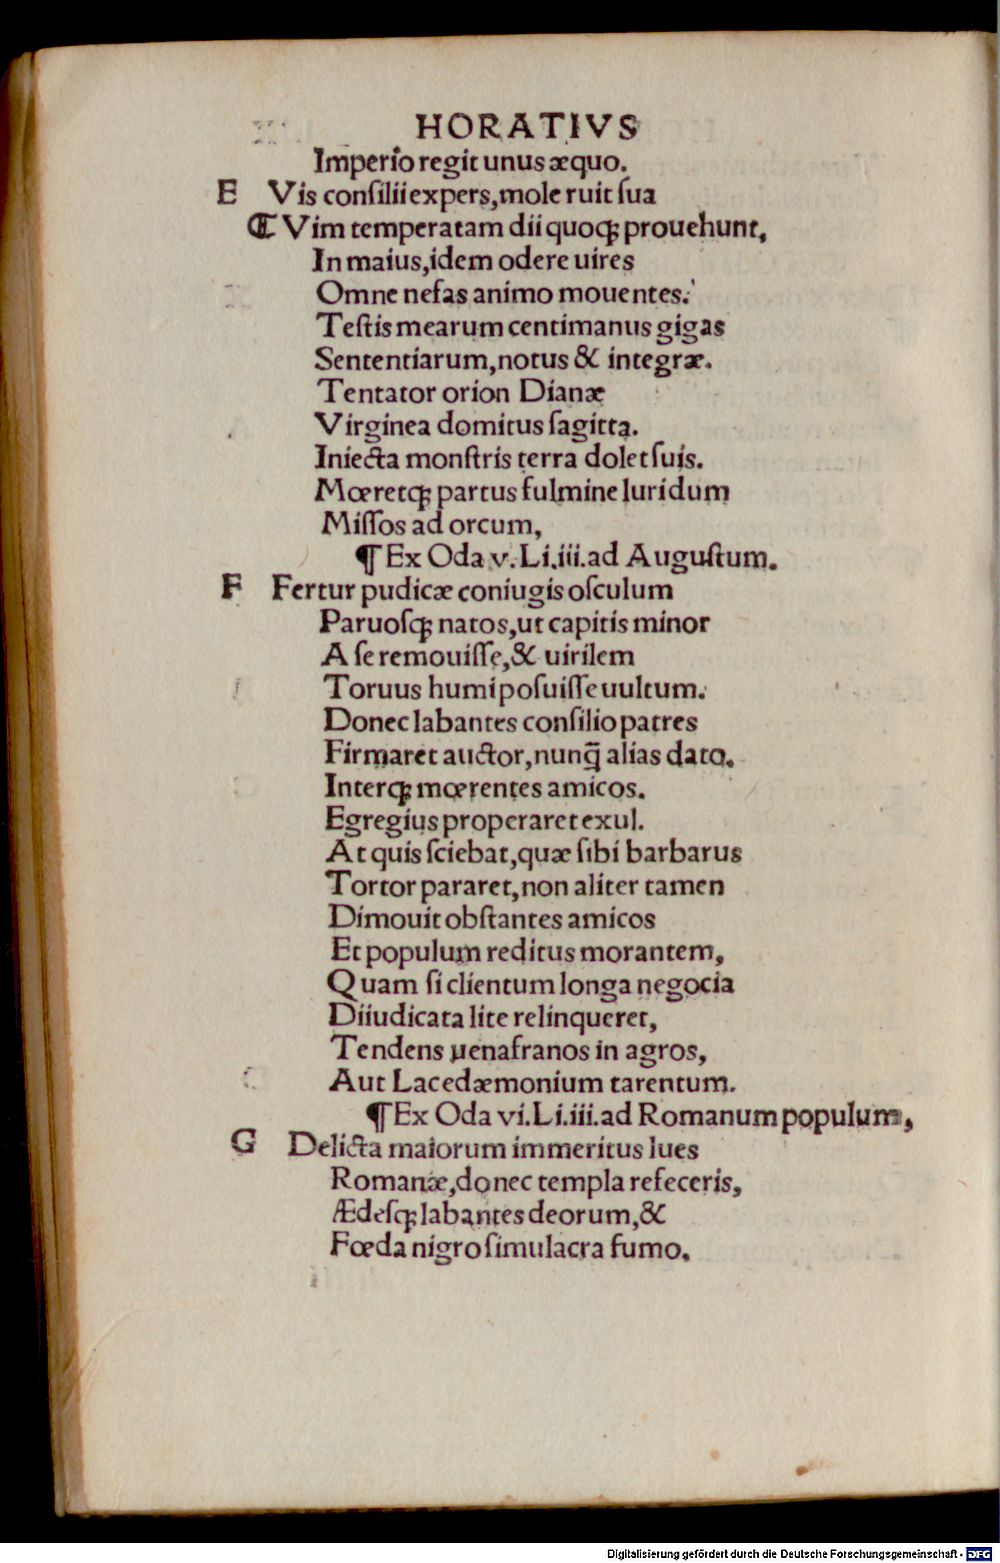 HORATIVS
Imperio regit unus æquo.
E Vis conſilii expers, mole ruit ſua
⸿ Vim temperatam dii quoqꝫ prouehunt,
In maius, idem odere uires
Omne nefas animo mouentes.
Teſtis mearum centimanus gigas
Sententiarum, notus & integræ.
Tentator orion Dianæ
Virginea domitus ſagitta.
Iniecta monſtris terra dolet ſuis.
Mœretqꝫ partus fulmine luridum
Miſſos ad orcum,
¶ Ex Oda v. Li.iii. ad Auguſtum.
F Fertur pudicæ coniugis oſculum
Paruoſqꝫ natos, ut capitis minor
A ſe remouiſſe, & uirilem
Toruus humi poſuiſſe uultum.
Donec labantes conſilio patres
Firmaret auctor, nunq̃ alias dato.
Interqꝫ mœrentes amicos.
Egregius properaret exul.
At quis ſciebat, quæ ſibi barbarus
Tortor pararet, non aliter tamen
Dimouit obſtantes amicos
Et populum reditus morantem,
Quam ſi clientum longa negocia
Diiudicata lite relinqueret,
Tendens uenafranos in agros,
Aut Lacedæmonium tarentum.
¶ Ex Oda vi. Li.iii. ad Romanum populum,
G Delicta maiorum immeritus lues
Romanæ, donec templa refeceris,
Ædeſqꝫ labantes deorum, &
Fœda nigro ſimulacra fumo.
Digitalisierung gefördert durch die Deutsche Forschungsgemeinschaft - DFG